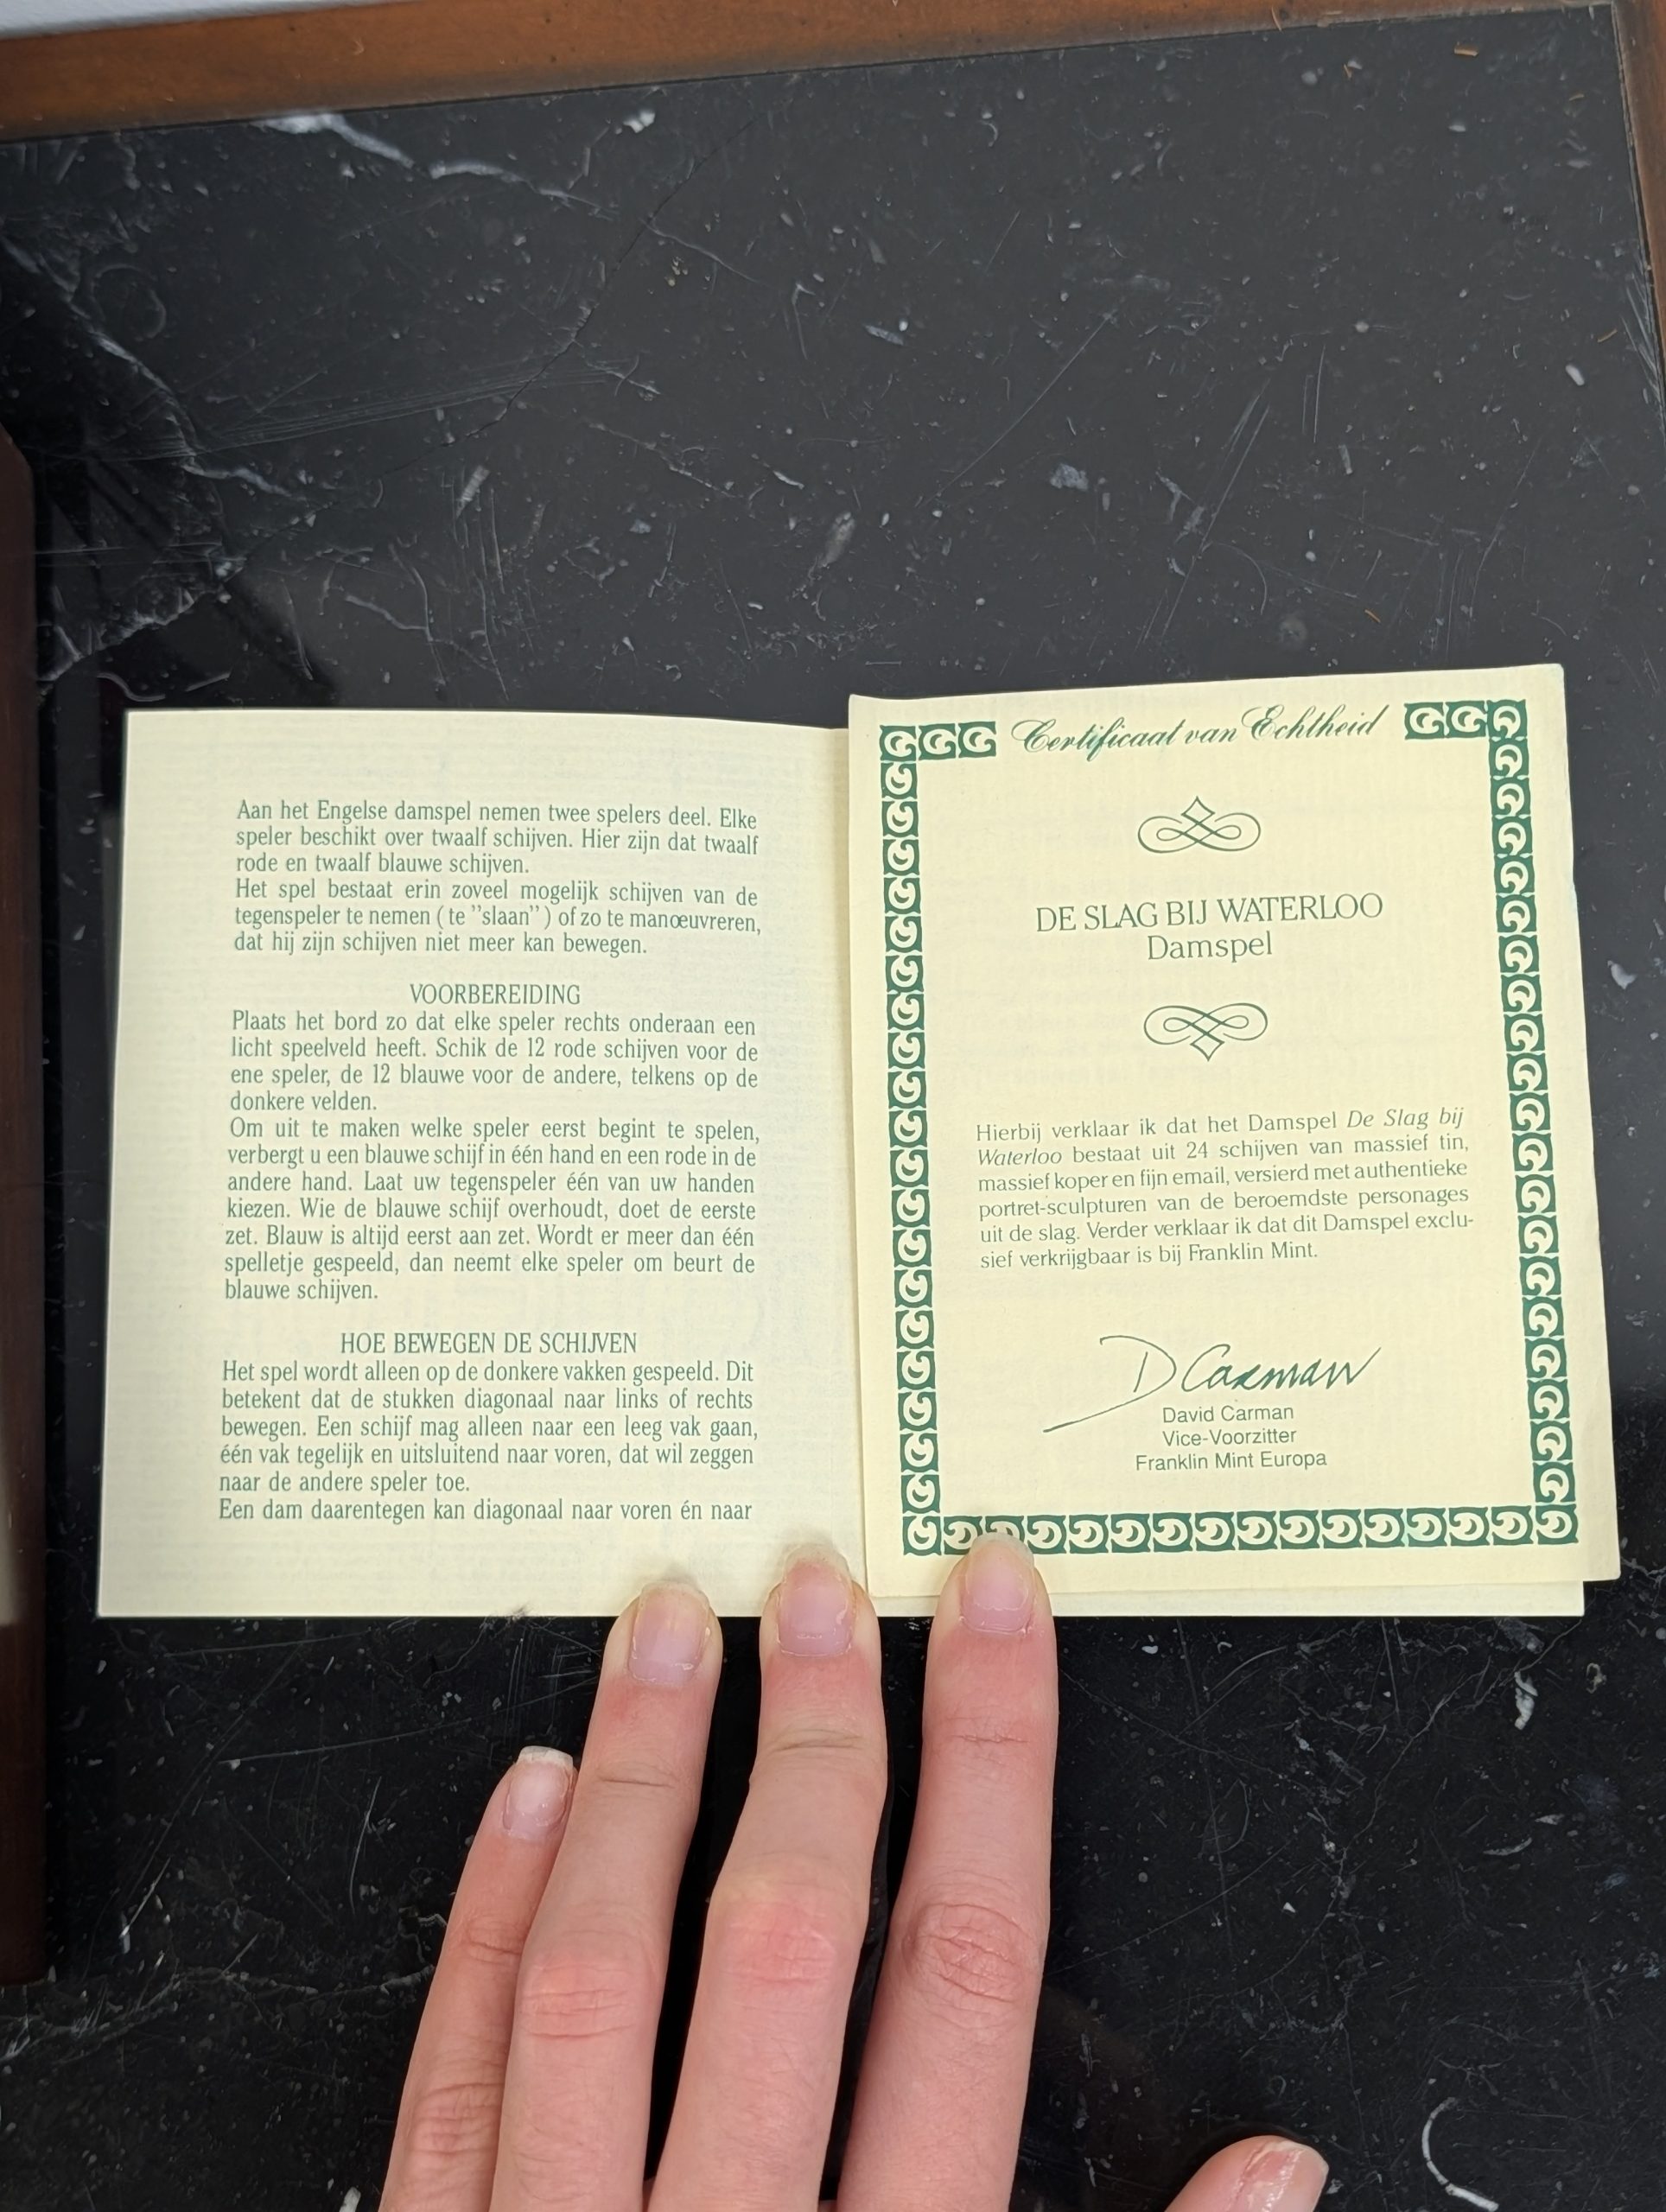 Aan het Engelse damspel nemen twee spelers deel. Elke
speler beschikt over twaalf schijven. Hier zijn dat twaalf
rode en twaalf blauwe schijven.
Het spel bestaat erin zoveel mogelijk schijven van de
tegenspeler te nemen ( te ''slaan'' ) of zo te manœuvreren,
dat hij zijn schijven niet meer kan bewegen.
VOORBEREIDING
Plaats het bord zo dat elke speler rechts onderaan een
licht speelveld heeft. Schik de 12 rode schijven voor de
ene speler, de 12 blauwe voor de andere, telkens op de
donkere velden.
Om uit te maken welke speler eerst begint te spelen,
verbergt u een blauwe schijf in één hand en een rode in de
andere hand. Laat uw tegenspeler één van uw handen
kiezen. Wie de blauwe schijf overhoudt, doet de eerste
zet. Blauw is altijd eerst aan zet. Wordt er meer dan één
spelletje gespeeld, dan neemt elke speler om beurt de
blauwe schijven.
HOE BEWEGEN DE SCHIJVEN
Het spel wordt alleen op de donkere vakken gespeeld. Dit
betekent dat de stukken diagonaal naar links of rechts
bewegen. Een schijf mag alleen naar een leeg vak gaan,
één vak tegelijk en uitsluitend naar voren, dat wil zeggen
naar de andere speler toe.
Een dam daarentegen kan diagonaal naar voren én naar
Certificaat van Echtheid
DE SLAG BIJ WATERLOO
Damspel
Hierbij verklaar ik dat het Damspel De Slag bij
Waterloo bestaat uit 24 schijven van massief tin,
massief koper en fijn email, versierd met authentieke
portret-sculpturen van de beroemdste personages
uit de slag. Verder verklaar ik dat dit Damspel exclu-
sief verkrijgbaar is bij Franklin Mint.
D Carman
David Carman
Vice-Voorzitter
Franklin Mint Europa